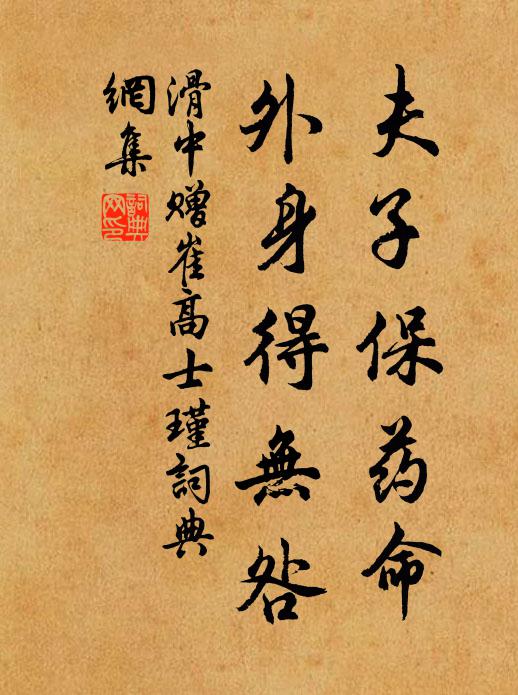 夫子保药命
外身得無咎
滑中赠崔高士瑾詞典
網集
詞典
网印